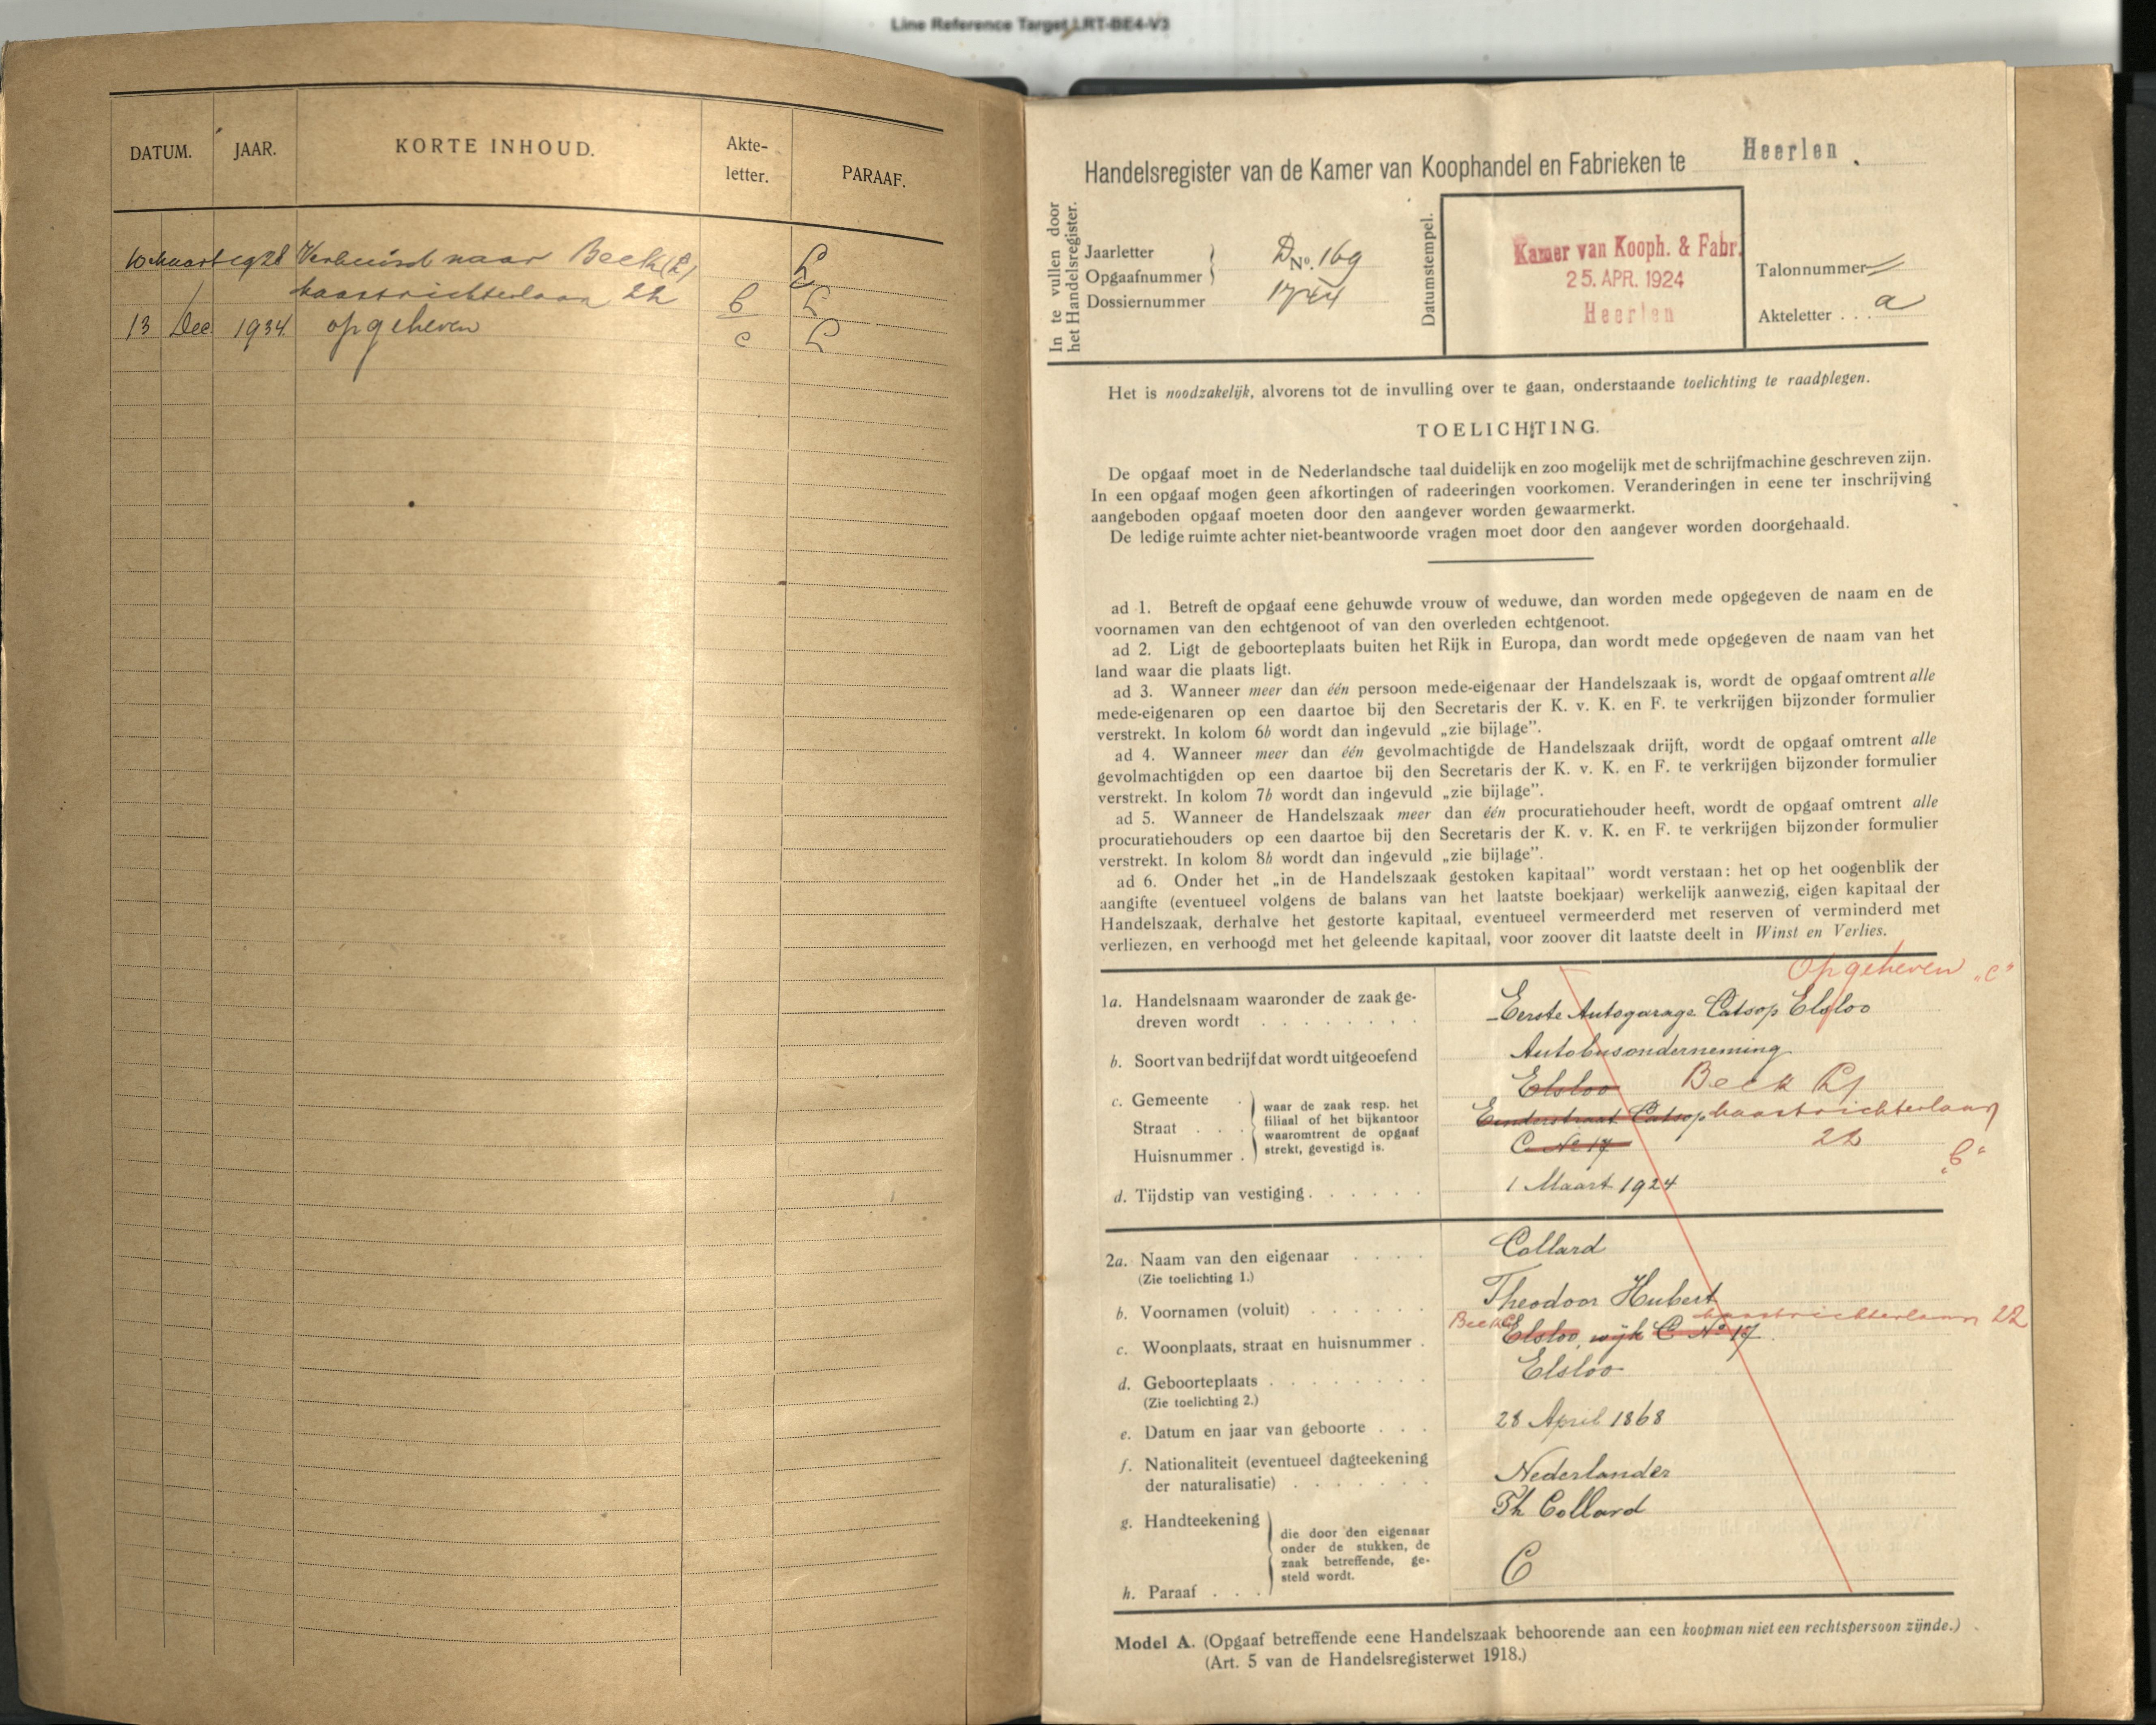 Line Reference Target LRT-BE4-V3
DATUM. JAAR. KORTE INHOUD. Akte-letter. PARAAF.
10 Maart 1928 Verhuisd naar Beek (L)
Maastrichterlaan 22 b
13 Dec 1934. opgeheven c
Handelsregister van de Kamer van Koophandel en Fabrieken te Heerlen.
In te vullen door het Handelsregister.
Jaarletter
Opgaafnummer
D No. 169
Dossiernummer 1744
Datumstempel.
Kamer van Kooph. & Fabr.
25. APR. 1924
Heerlen
Talonnummer
Akteletter . . . a
Het is noodzakelijk, alvorens tot de invulling over te gaan, onderstaande toelichting te raadplegen.
TOELICHTING.
De opgaaf moet in de Nederlandsche taal duidelijk en zoo mogelijk met de schrijfmachine geschreven zijn.
In een opgaaf mogen geen afkortingen of radeeringen voorkomen. Veranderingen in eene ter inschrijving
aangeboden opgaaf moeten door den aangever worden gewaarmerkt.
De ledige ruimte achter niet-beantwoorde vragen moet door den aangever worden doorgehaald.
ad 1. Betreft de opgaaf eene gehuwde vrouw of weduwe, dan worden mede opgegeven de naam en de
voornamen van den echtgenoot of van den overleden echtgenoot.
ad 2. Ligt de geboorteplaats buiten het Rijk in Europa, dan wordt mede opgegeven de naam van het
land waar die plaats ligt.
ad 3. Wanneer meer dan één persoon mede-eigenaar der Handelszaak is, wordt de opgaaf omtrent alle
mede-eigenaren op een daartoe bij den Secretaris der K. v. K. en F. te verkrijgen bijzonder formulier
verstrekt. In kolom 6b wordt dan ingevuld „zie bijlage”.
ad 4. Wanneer meer dan één gevolmachtigde de Handelszaak drijft, wordt de opgaaf omtrent alle
gevolmachtigden op een daartoe bij den Secretaris der K. v. K. en F. te verkrijgen bijzonder formulier
verstrekt. In kolom 7b wordt dan ingevuld „zie bijlage”.
ad 5. Wanneer de Handelszaak meer dan één procuratiehouder heeft, wordt de opgaaf omtrent alle
procuratiehouders op een daartoe bij den Secretaris der K. v. K. en F. te verkrijgen bijzonder formulier
verstrekt. In kolom 8b wordt dan ingevuld „zie bijlage”.
ad 6. Onder het „in de Handelszaak gestoken kapitaal” wordt verstaan: het op het oogenblik der
aangifte (eventueel volgens de balans van het laatste boekjaar) werkelijk aanwezig, eigen kapitaal der
Handelszaak, derhalve het gestorte kapitaal, eventueel vermeerderd met reserven of verminderd met
verliezen, en verhoogd met het geleende kapitaal, voor zoover dit laatste deelt in Winst en Verlies.
Opgeheven „c”
1a. Handelsnaam waaronder de zaak ge-
dreven wordt . . . . . . . . Eerste Autogarage Catsop Elsloo
b. Soort van bedrijf dat wordt uitgeoefend Autobusonderneming
c. Gemeente . Elsloo Beek L
Straat . . . Einderstraat Catsop Maastrichterlaan
Huisnummer . C No 17 22
waar de zaak resp. het
filiaal of het bijkantoor
waaromtrent de opgaaf
strekt, gevestigd is.
„b”
d. Tijdstip van vestiging . . . . . . 1 Maart 1924
2a. Naam van den eigenaar . . . . Collard
(Zie toelichting 1.)
b. Voornamen (voluit) . . . . . . Theodoor Hubert
Beek Maastrichterlaan 22
c. Woonplaats, straat en huisnummer . Elsloo, wijk C No 17.
d. Geboorteplaats . . . . . . . . Elsloo
(Zie toelichting 2.)
e. Datum en jaar van geboorte . . . 28 April 1868
f. Nationaliteit (eventueel dagteekening
der naturalisatie) . . . . . . . Nederlander
g. Handteekening Th Collard
die door den eigenaar
onder de stukken, de
zaak betreffende, ge-
steld wordt.
h. Paraaf . . . C
Model A. (Opgaaf betreffende eene Handelszaak behoorende aan een koopman niet een rechtspersoon zijnde.)
(Art. 5 van de Handelsregisterwet 1918.)